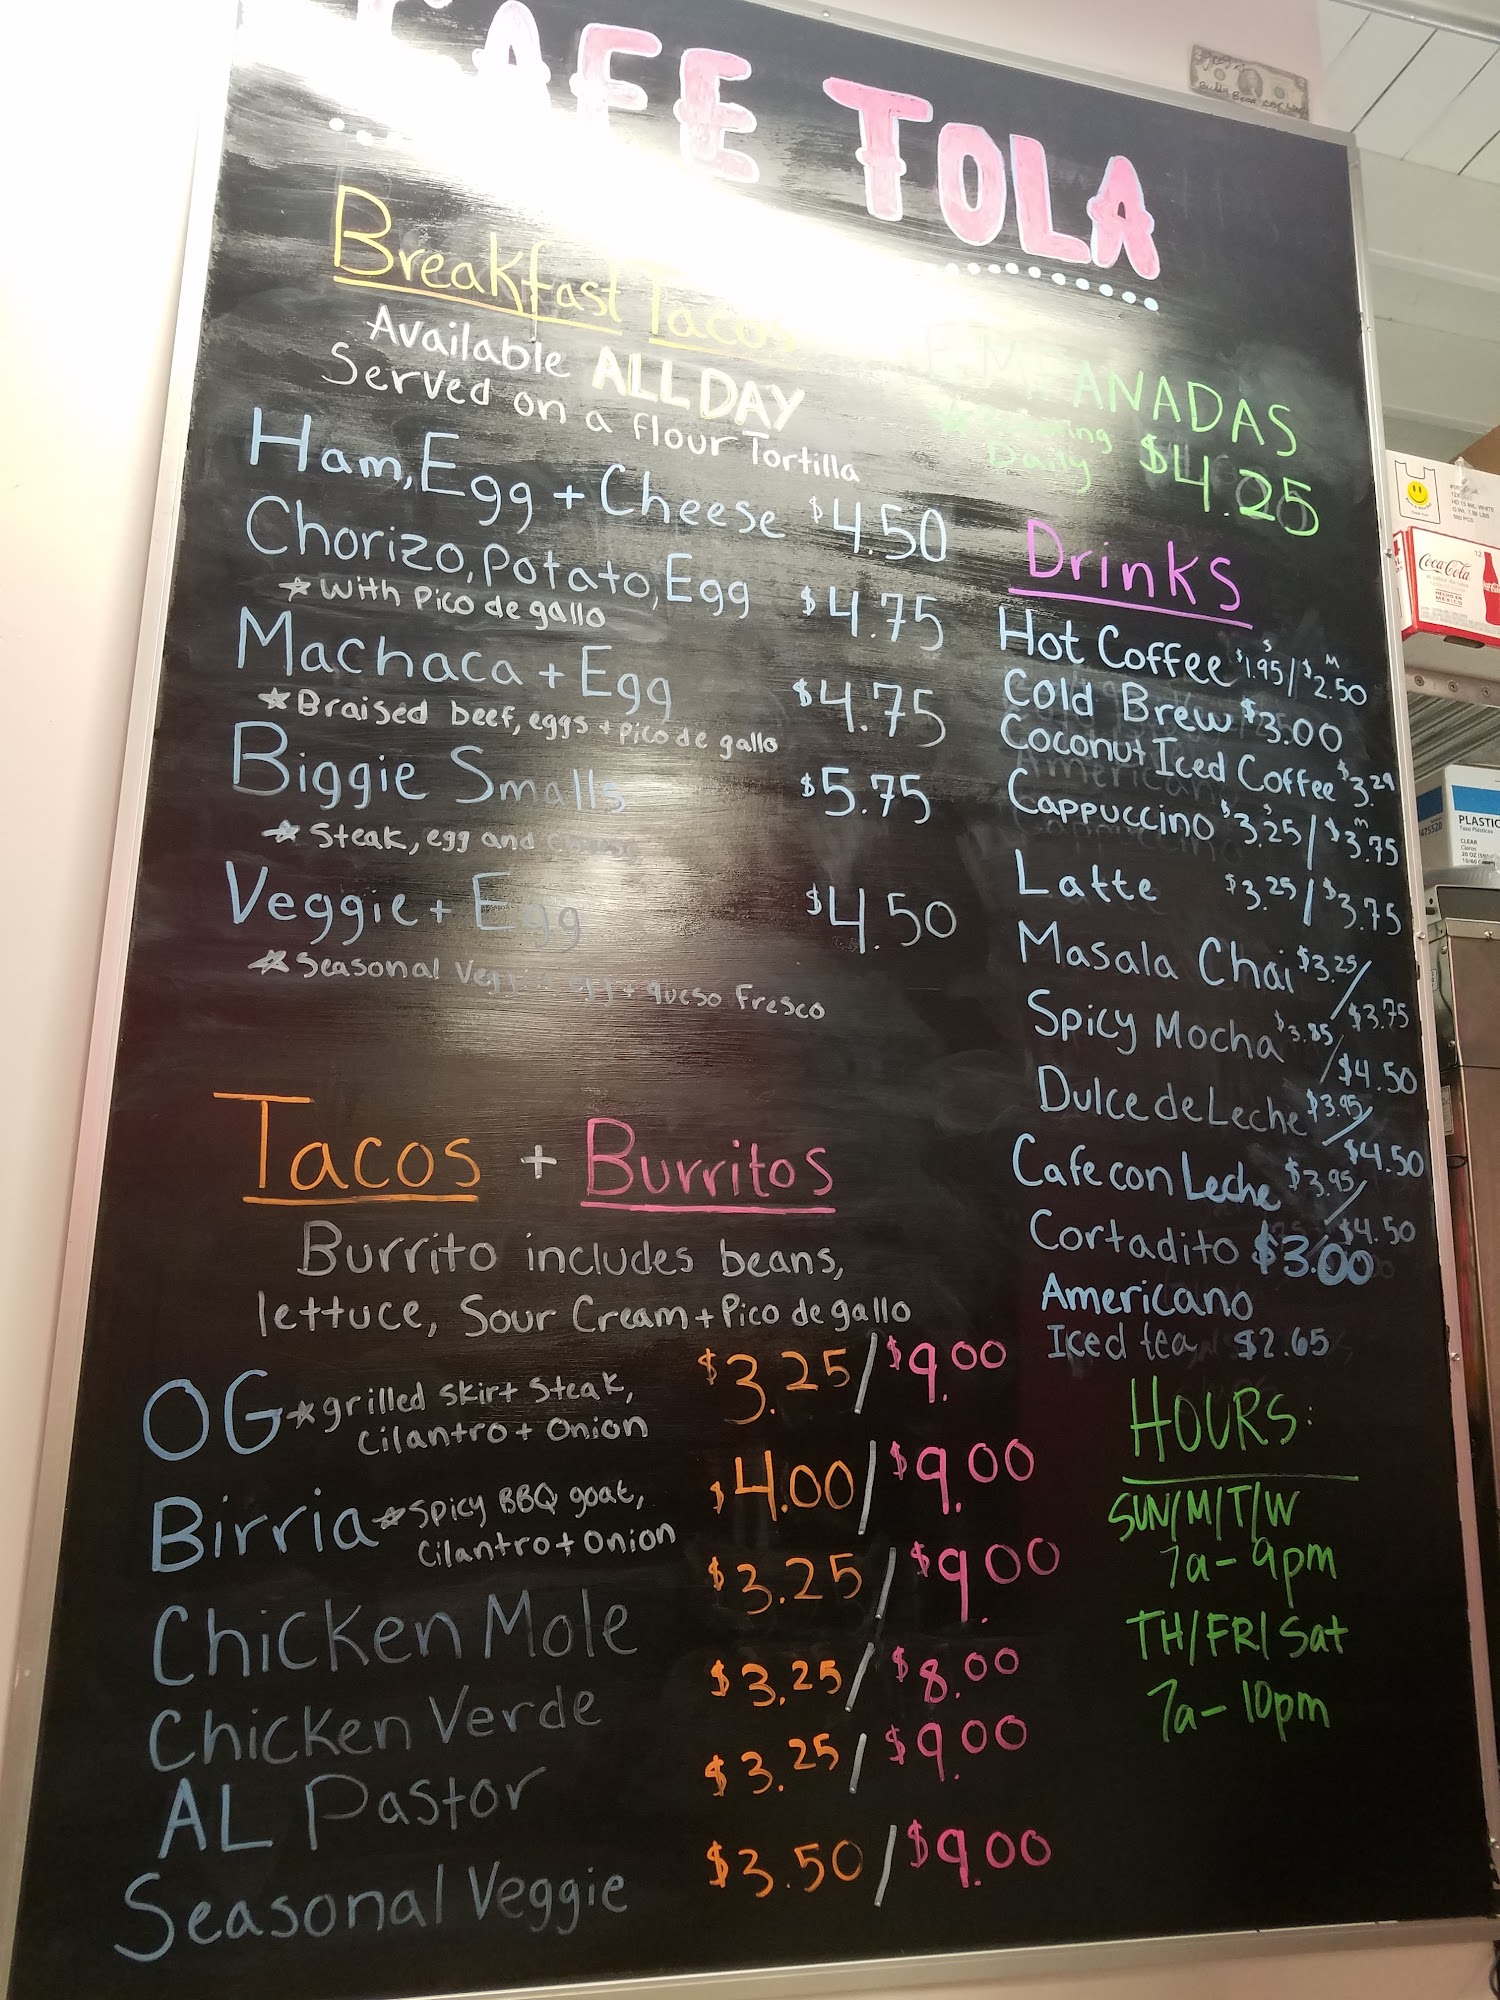 CAFE TOLA
Breakfast Tacos
Available ALL DAY
Served on a flour Tortilla
Ham, Egg + Cheese $4.50
Chorizo, Potato, Egg $4.75
★ with pico de gallo
Machaca + Egg $4.75
★ Braised beef, eggs + pico de gallo
Biggie Smalls $5.75
★ Steak, egg and cheese
Veggie + Egg $4.50
★ Seasonal Veggie, egg + queso fresco
EMPANADAS
Daily $4.25
Drinks
S M
Hot Coffee $1.95/$2.50
Cold Brew $3.00
Coconut Iced Coffee $3.29
S M
Cappuccino $3.25/$3.75
Latte $3.25/$3.75
Masala Chai $3.25/
$3.75
Spicy Mocha $3.85/
$4.50
Dulce de Leche $3.95/
$4.50
Cafe con Leche $3.95/
$4.50
Cortadito $3.00
Americano
Iced tea $2.65
HOURS:
SUN/M/T/W
7a-9pm
TH/FRI/Sat
7a-10pm
Tacos + Burritos
Burrito includes beans,
lettuce, Sour Cream + Pico de gallo
OG ★ grilled skirt steak, $3.25/$9.00
Cilantro + Onion
Birria ★ Spicy BBQ goat, $4.00/$9.00
Cilantro + Onion
Chicken Mole $3.25/$9.00
Chicken Verde $3.25/$8.00
AL Pastor $3.25/$9.00
Seasonal Veggie $3.50/$9.00
Coca-Cola
HECHO EN
MEXICO
12
PLASTIC
CLEAR